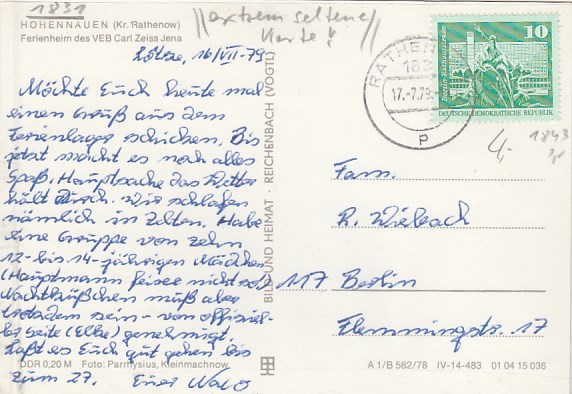 1831
HOHENNAUEN (Kr. Rathenow)
Ferienheim des VEB Carl Zeiss Jena
extrem seltene
Karte!
16/VII-79
Möchte Euch heute mal
einen Gruß aus dem
Ferienlager schicken. Bis
jetzt macht es noch alles
Spaß. Hauptsache das Wetter
hält durch. Wir schlafen
nämlich in Zelten. Habe
eine Gruppe von zehn
12- bis 14-jährigen Mädchen
(Hauptmann nicht so)
Nachthüßchen muß aber
trotzdem sein - von offiziel-
ler Seite (Elke) genehmigt.
Laßt es Euch gut gehen bis
zum 27. Euer
DDR 0,20 M Foto: Parrhysius, Kleinmachnow
BILD UND HEIMAT · REICHENBACH (VOGTL)
RATHENOW
183
17.-7.79
P
10
DEUTSCHE DEMOKRATISCHE REPUBLIK
4,-
1843
Fam.
R. Wiebach
117 Berlin
Flemmingstr. 17
A 1/B 582/78 IV-14-483 01 04 15 036